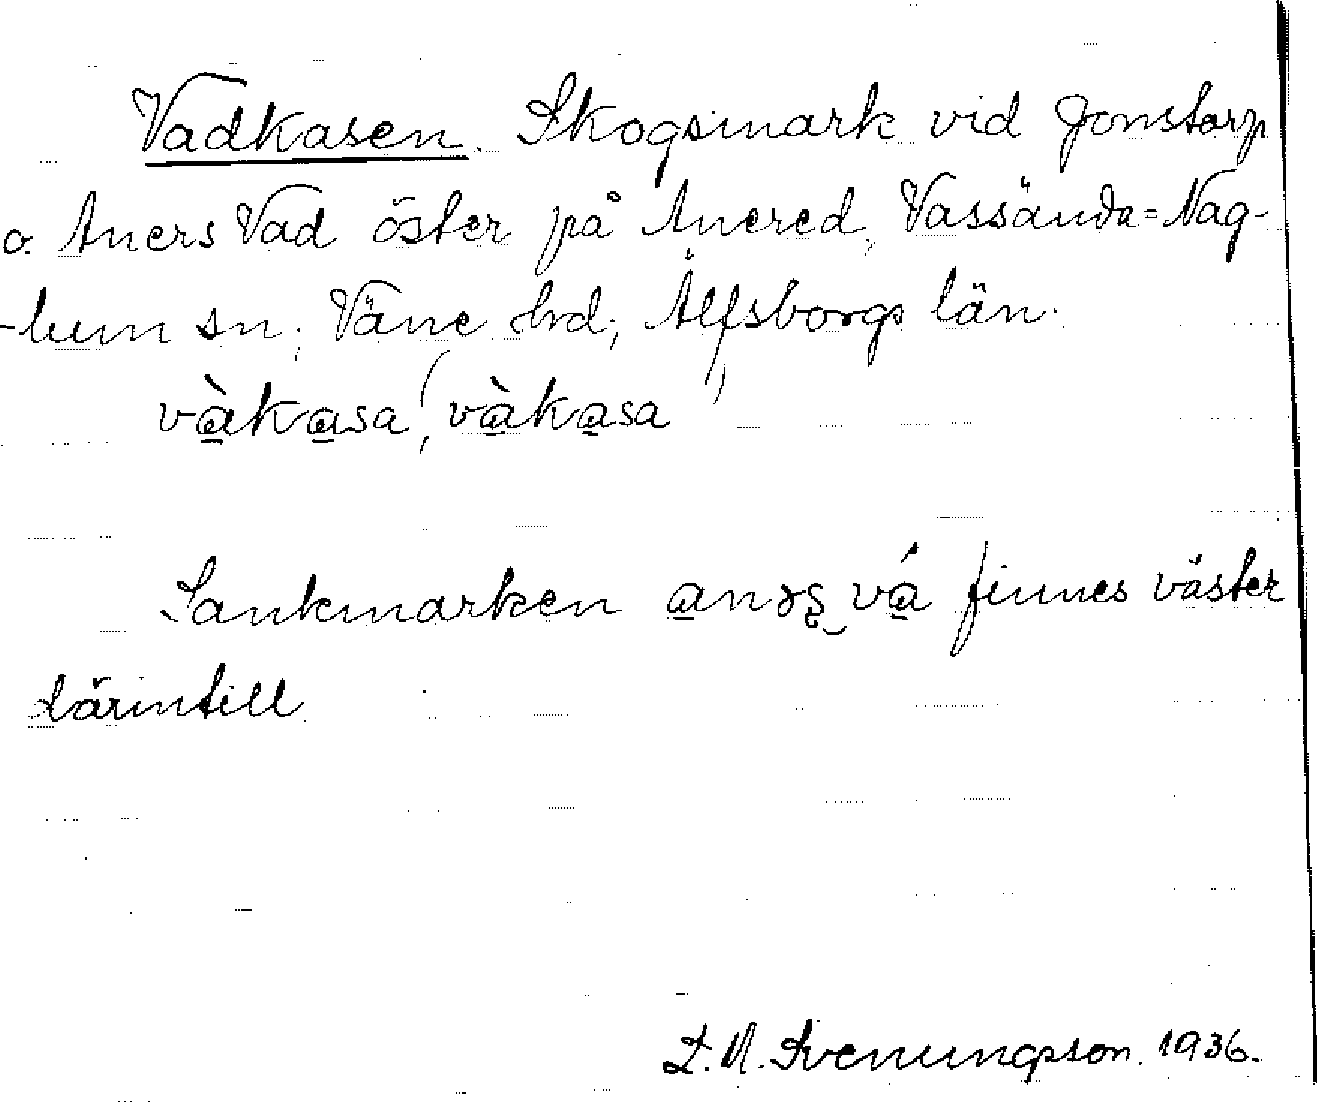 Vadkasen. Skogsmark vid Jonstorp
o. Aners Vad öster på Anered, Vassända=Nag-
-lum sn, Väne hrd, Älfsborgs län.
và̱ka̱sa (và̱ka̱sa)
Sankmarken vá̱ finnes väster
därintill
Svenungsson. 1936.